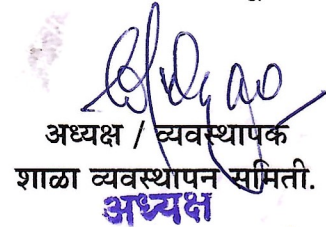 अध्यक्ष / व्यवस्थापक
शाळा व्यवस्थापन समिती.
अध्यक्ष